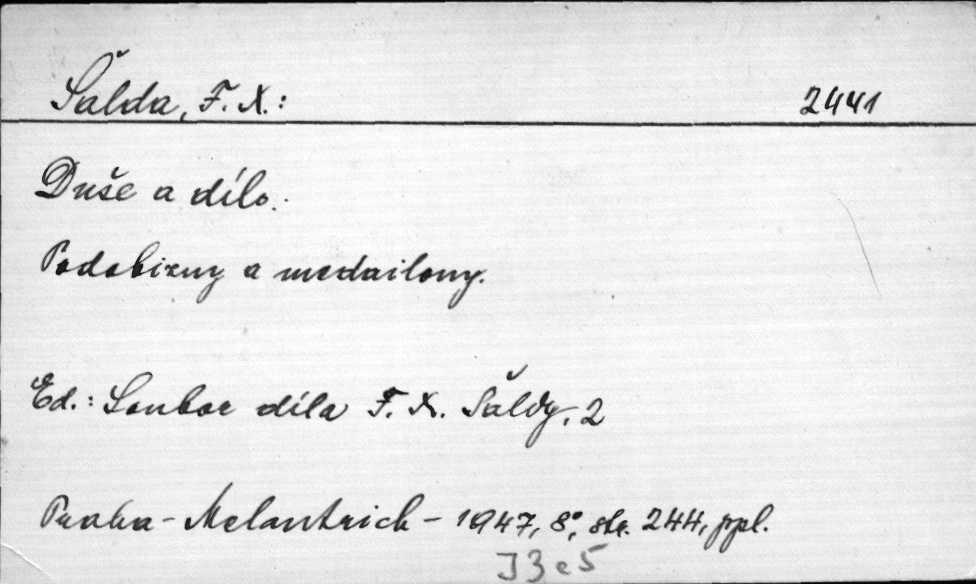 Šalda, F. X.: 2441
Duše a dílo.
Podobizny a medailony.
Ed.: Soubor díla F. X. Šaldy, 2
Praha - Melantrich - 1947, 8°, str. 244, ppl.
J 3 e 5